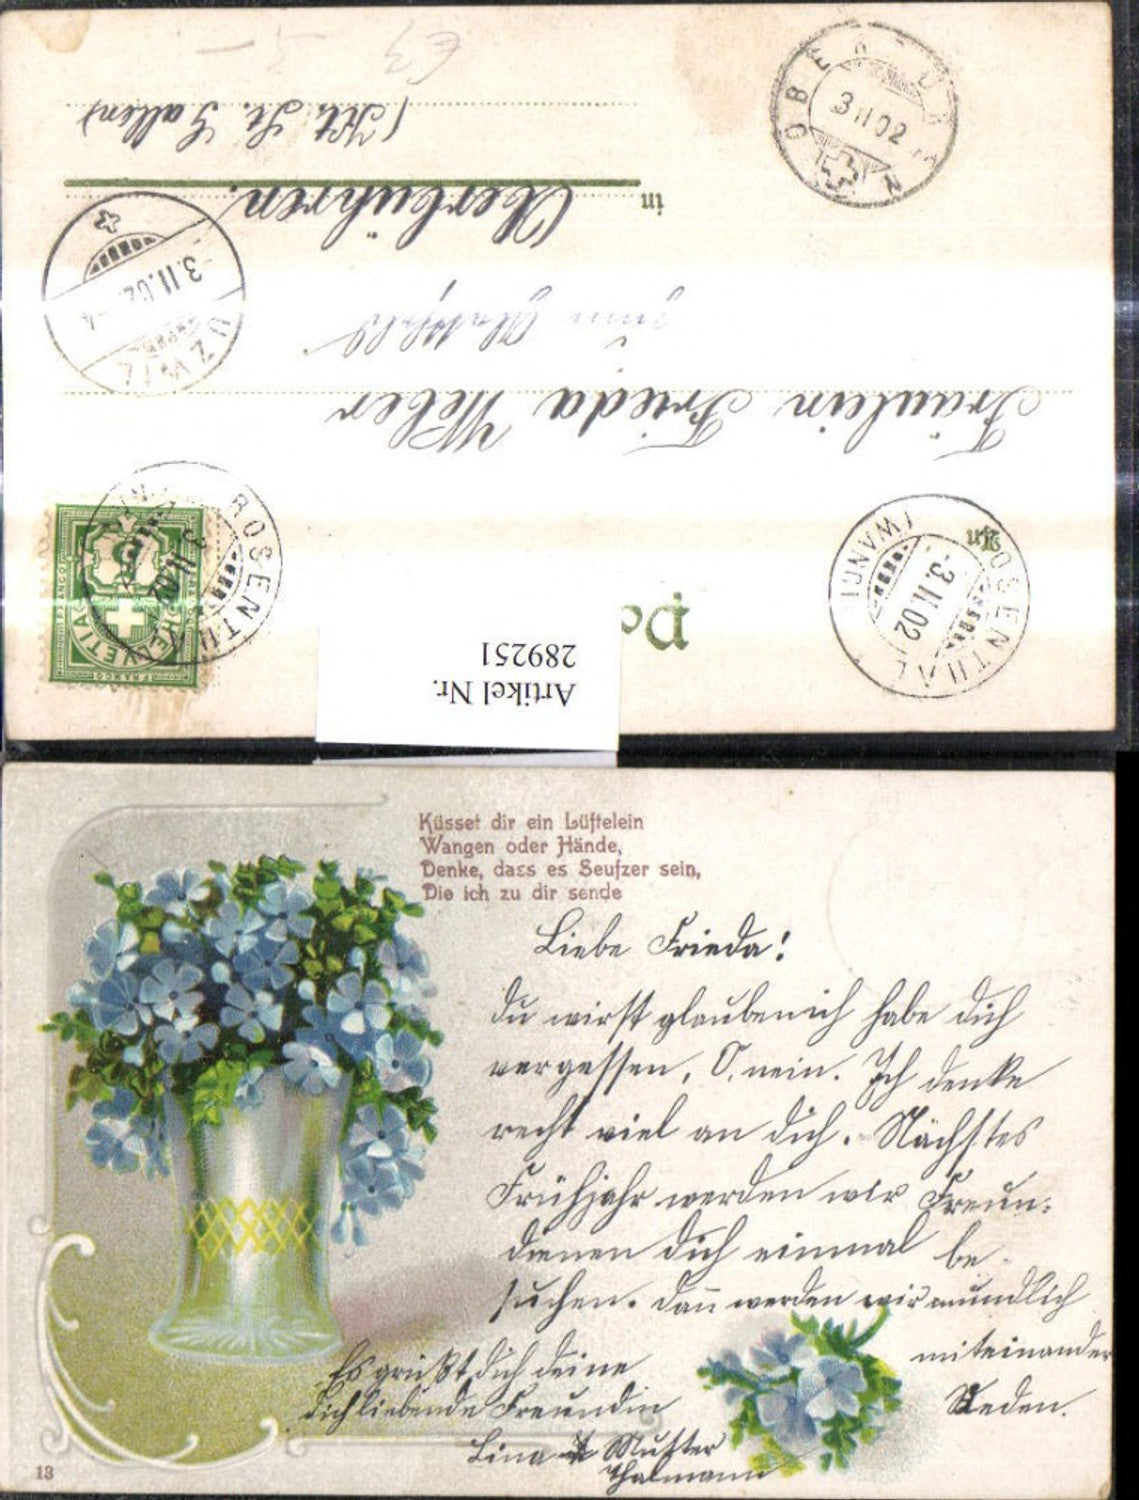 (Kt. St. Gallen)
in Oberbühren.
Fräulein Frieda Weber
OBERBÜREN
3 II 02
UZWIL
-3.II.02.-4
ROSENTHAL
3 II.02
HELVETIA
FRANCO
5
ROSENTHAL (WÄNGI)
-3.II.02
An
Po
Artikel Nr.
289251
Küsset dir ein Lüftelein
Wangen oder Hände,
Denke, dass es Seufzer sein,
Die ich zu dir sende
Liebe Frieda!
Du wirst glauben ich habe dich
vergessen, O, nein. Ich denke
recht viel an dich. Nächstes
Frühjahr werden wir Freun-
dinnen dich einmal be-
suchen. Dann werden wir mundlich
miteinander
Reden.
Es grüßt dich deine
dich liebende Freundin
Lina Mutter
Thalmann
13